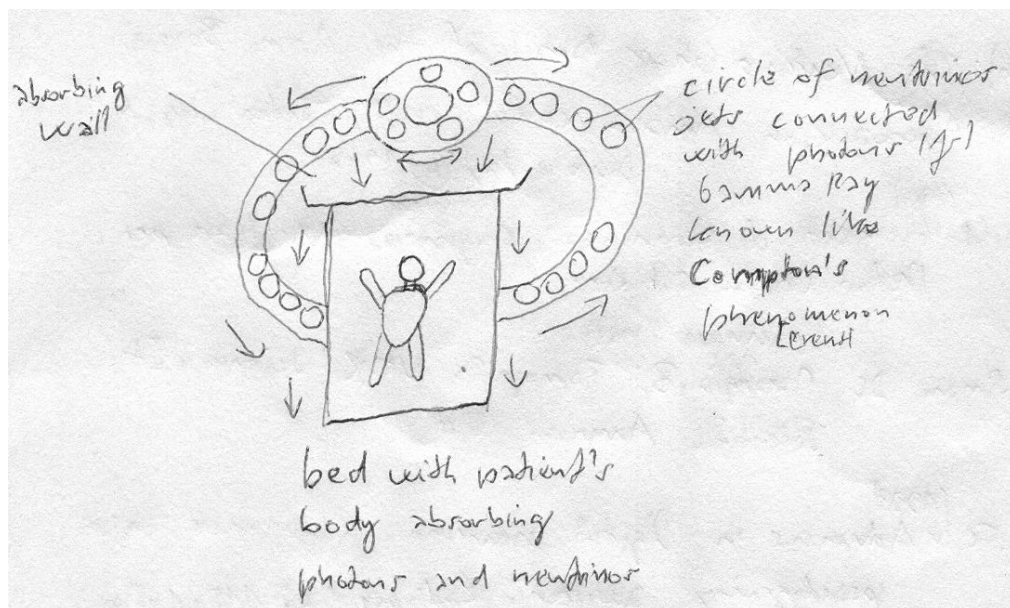 absorbing
wall
circle of neutrinos
jets connected
with photons (γ)
Gamma Ray
known like
Compton's
phenomenon
[event]
bed with patient's
body absorbing
photons and neutrinos